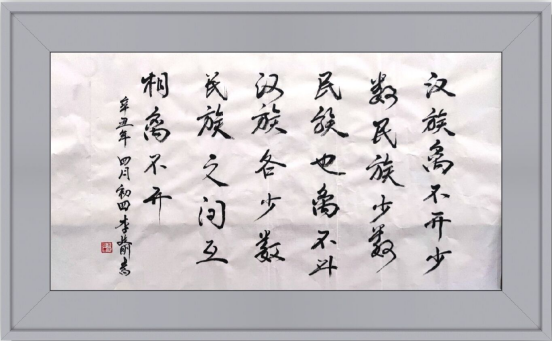 汉族离不开少
数民族少数
民族也离不开
汉族各少数
民族之间互
相离不开
辛丑年 四月初四李